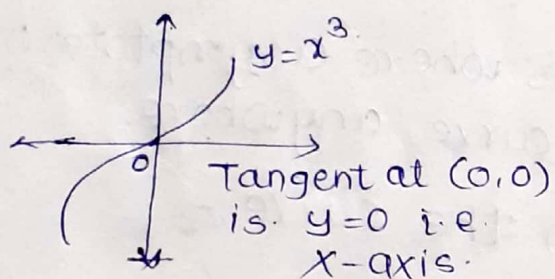 y=x³
O
Tangent at (0,0)
is. y=0 i.e.
X-axis.